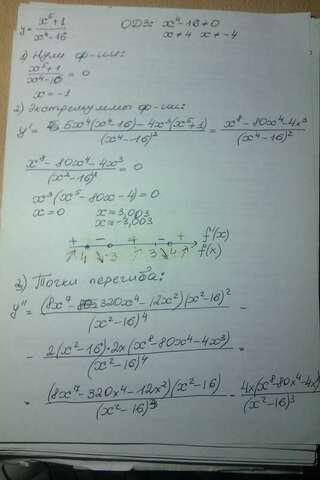 y = (x⁵+1)/(x⁴-16) ОДЗ: x⁴-16≠0
x≠4 x≠-4
1) Нули ф-ии:
(x⁵+1)/(x⁴-16) = 0
x = -1
2) Экстремуммы ф-ии:
y' = (5x⁴(x⁴-16) - 4x³(x⁵+1))/(x⁴-16)² = (x⁸-80x⁴-4x³)/(x⁴-16)²
(x⁸-80x⁴-4x³)/(x²-16)² = 0
x³(x⁵-80x-4)=0
x=0 x=3,003
x=-3,003
+ - + - + f'(x)
4 -3 3 4 f(x)
3) Точки перегиба:
y'' = ((8x⁷-320x⁴-12x²)(x²-16)²)/(x²-16)⁴ -
- (2(x²-16)·2x(x⁸-80x⁴-4x³))/(x²-16)⁴ =
= ((8x⁷-320x⁴-12x²)(x²-16))/(x²-16)³ - (4x(x⁸-80x⁴-4x³))/(x²-16)³